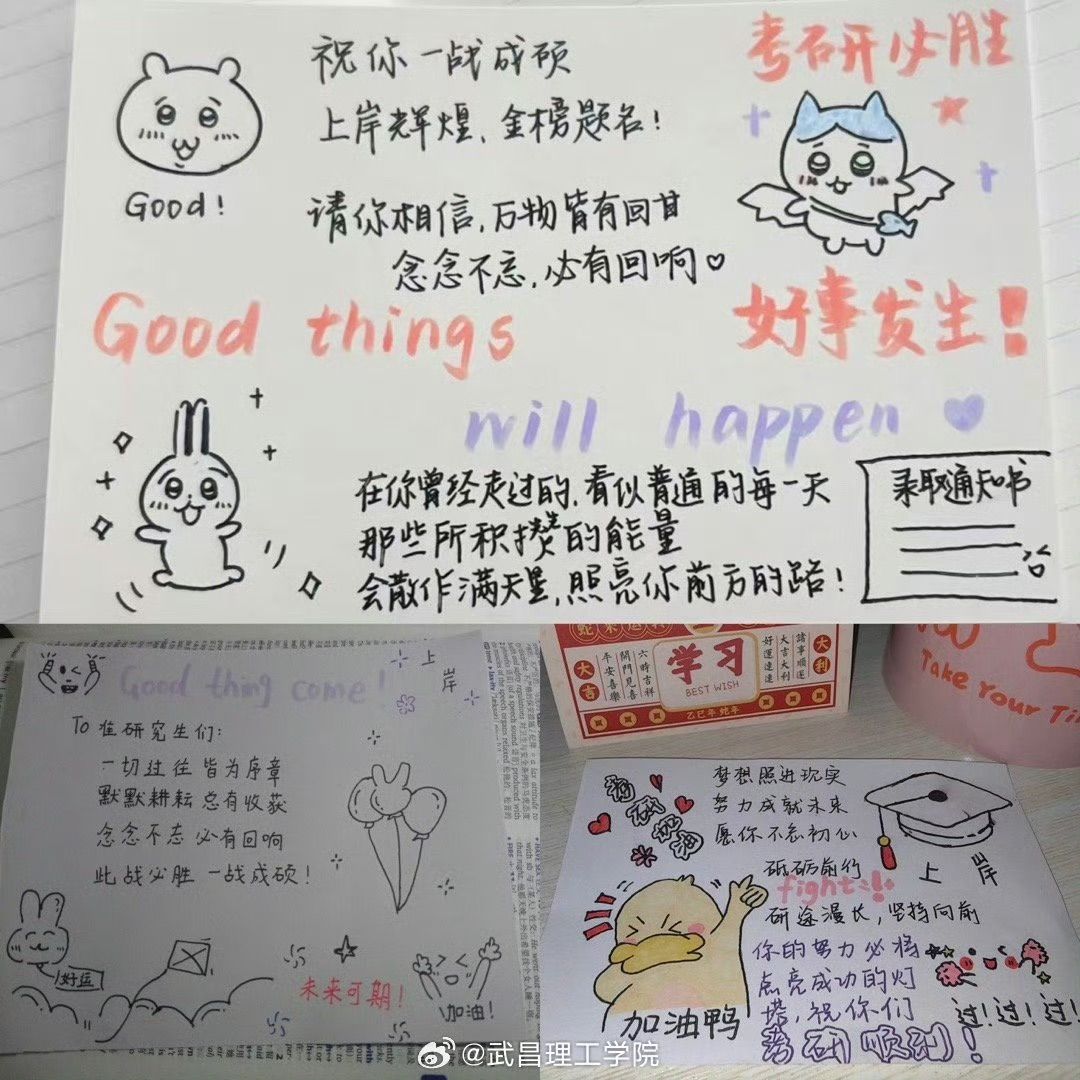 祝你一战成硕
上岸辉煌，金榜题名！
考研必胜
Good!
请你相信，万物皆有回甘
念念不忘，必有回响
Good things
好事发生！
will happen
在你曾经走过的，看似普通的每一天
那些所积攒的能量
会散作满天星，照亮你前方的路！
录取通知书
Good thing come!
上岸
To 准研究生们：
一切过往 皆为序章
默默耕耘 总有收获
念念不忘 必有回响
此战必胜 一战成硕！
好运
未来可期！
加油！
大吉
平安喜樂
開門見喜
六時吉祥
学习
BEST WISH
好運連連
大吉大利
諸事順遂
大利
乙巳年 蛇年
Take Your Ti
梦想照进现实
努力成就未来
愿你不忘初心
砥砺前行
上岸
fight!!
研途漫长，坚持向前
你的努力必将
点亮成功的灯
塔，祝你们
考研顺利！
加油鸭
过！过！过！
@武昌理工学院